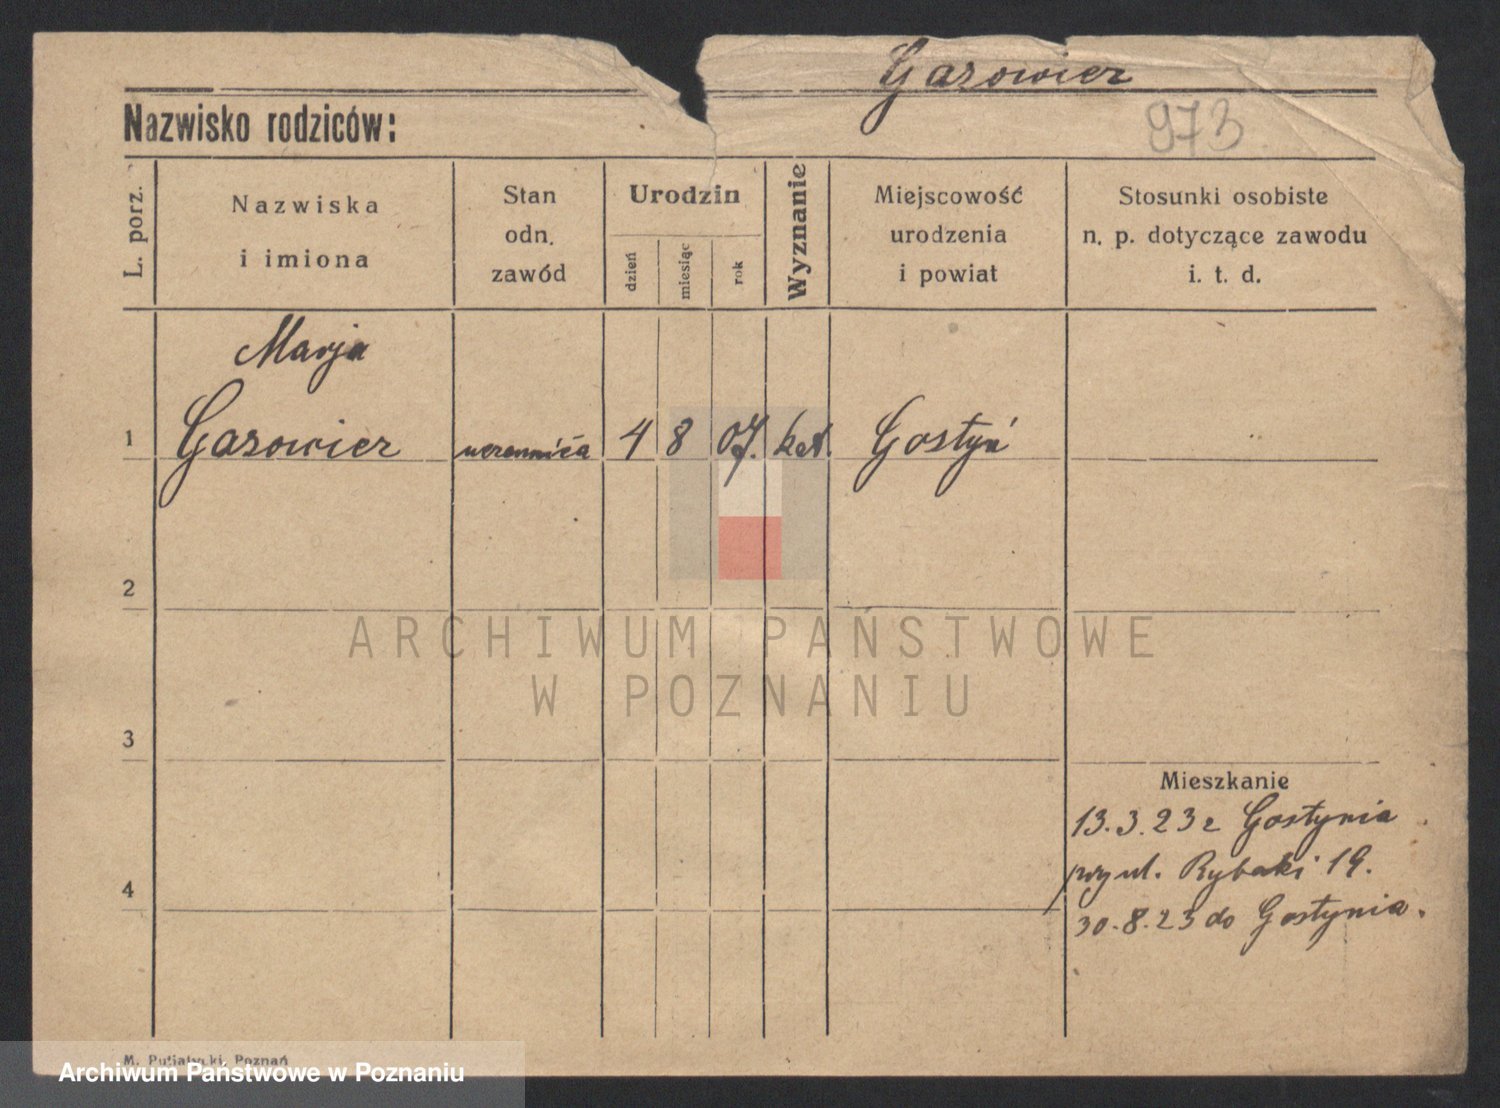 Gasowier
973
Nazwisko rodziców:
L. porz.
Nazwiska
i imiona
Stan
odn.
zawód
Urodzin
dzień
miesiąc
rok
Wyznanie
Miejscowość
urodzenia
i powiat
Stosunki osobiste
n. p. dotyczące zawodu
i. t. d.
Marja
1 Gasowier uczennica 4 8 07. kat. Gostyń
2
ARCHIWUM PAŃSTWOWE
W POZNANIU
3
Mieszkanie
13.3.23 z Gostynia
przy ul. Rybaki 19.
4
30.8.23 do Gostynia.
M. Putiatycki, Poznań
Archiwum Państwowe w Poznaniu